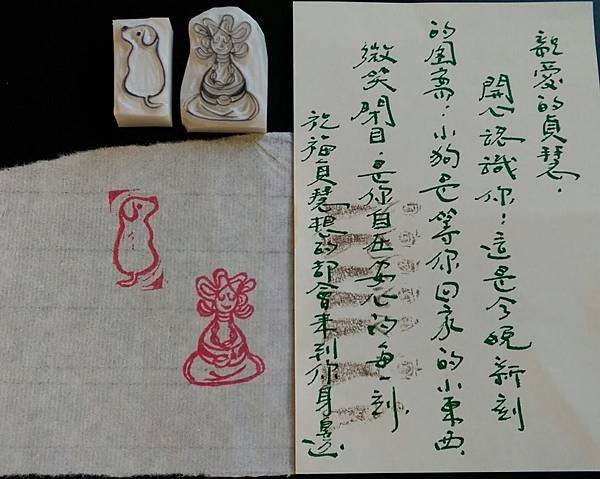 親愛的貞慧，
開心認識你！這是今晚新刻
的圖案：小狗是等你回家的小東西
微笑閉目，是你自在安心的每一刻，
祝福貞慧想的都會來到你身邊